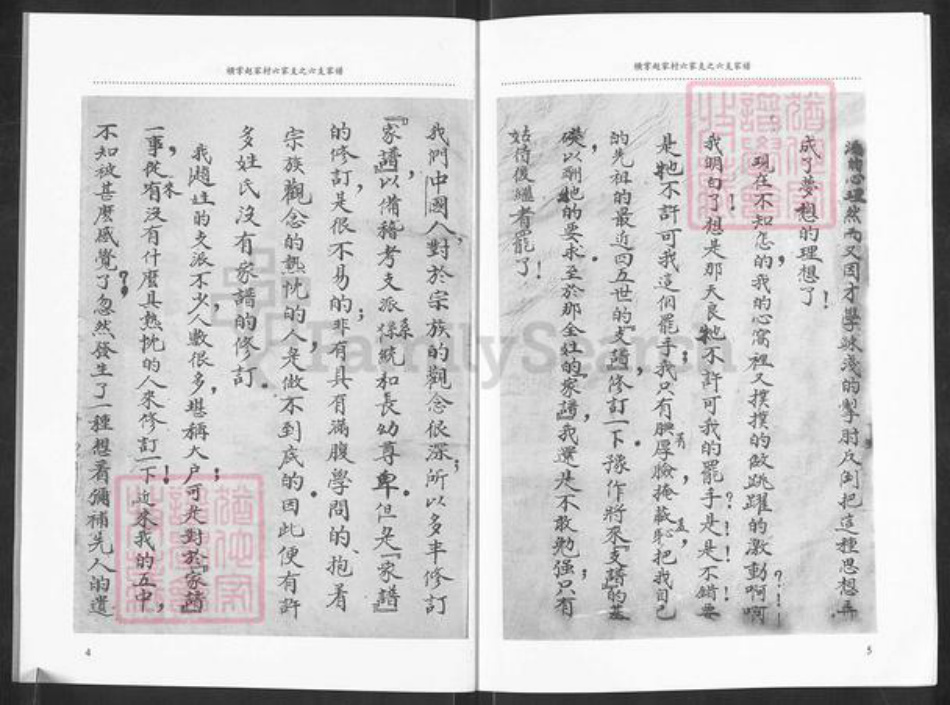 横掌赵家村六家支之六支家谱
我們中國人，對於宗族的觀念很深；所以多車修訂
『家譜』，以備稽考支派系統和長幼尊卑。但是『家譜』
的修訂，是很不易的；非有具有滿腹學問的、抱着
宗族觀念的熱忱的人，是做不到底的。因此便有許
多姓氏沒有家譜的修訂。
我趙姓的支派不少，人數很多，堪稱大户；可是對於『家譜』
一事，從來沒有什麼具熱忱的人來修訂一下！近來我的五中，
不知被甚麼感覺了？忽然發生了一種想着彌補先人的遺
4
横掌赵家村六家支之六支家谱
的心理然而又因才學疎淺的掣肘反倒把這種思想弄
成了夢想的理想了！
現在不知怎的，我的心窩裡又撲撲的做跳躍的激動啊啊？！！
我明白了！想是那天良牠不許可我的罷手是？是！不錯！要
是牠不許可我這個罷手；我只有腆着厚臉，掩蓋恥，把我自己
的先祖的最近四五世的『支譜』，修訂一下。豫作將來『支譜』的基
礎，以酬牠的要求。至於那全姓的『家譜』，我還是不敢勉强；只有
姑待後繼者罷了！
5